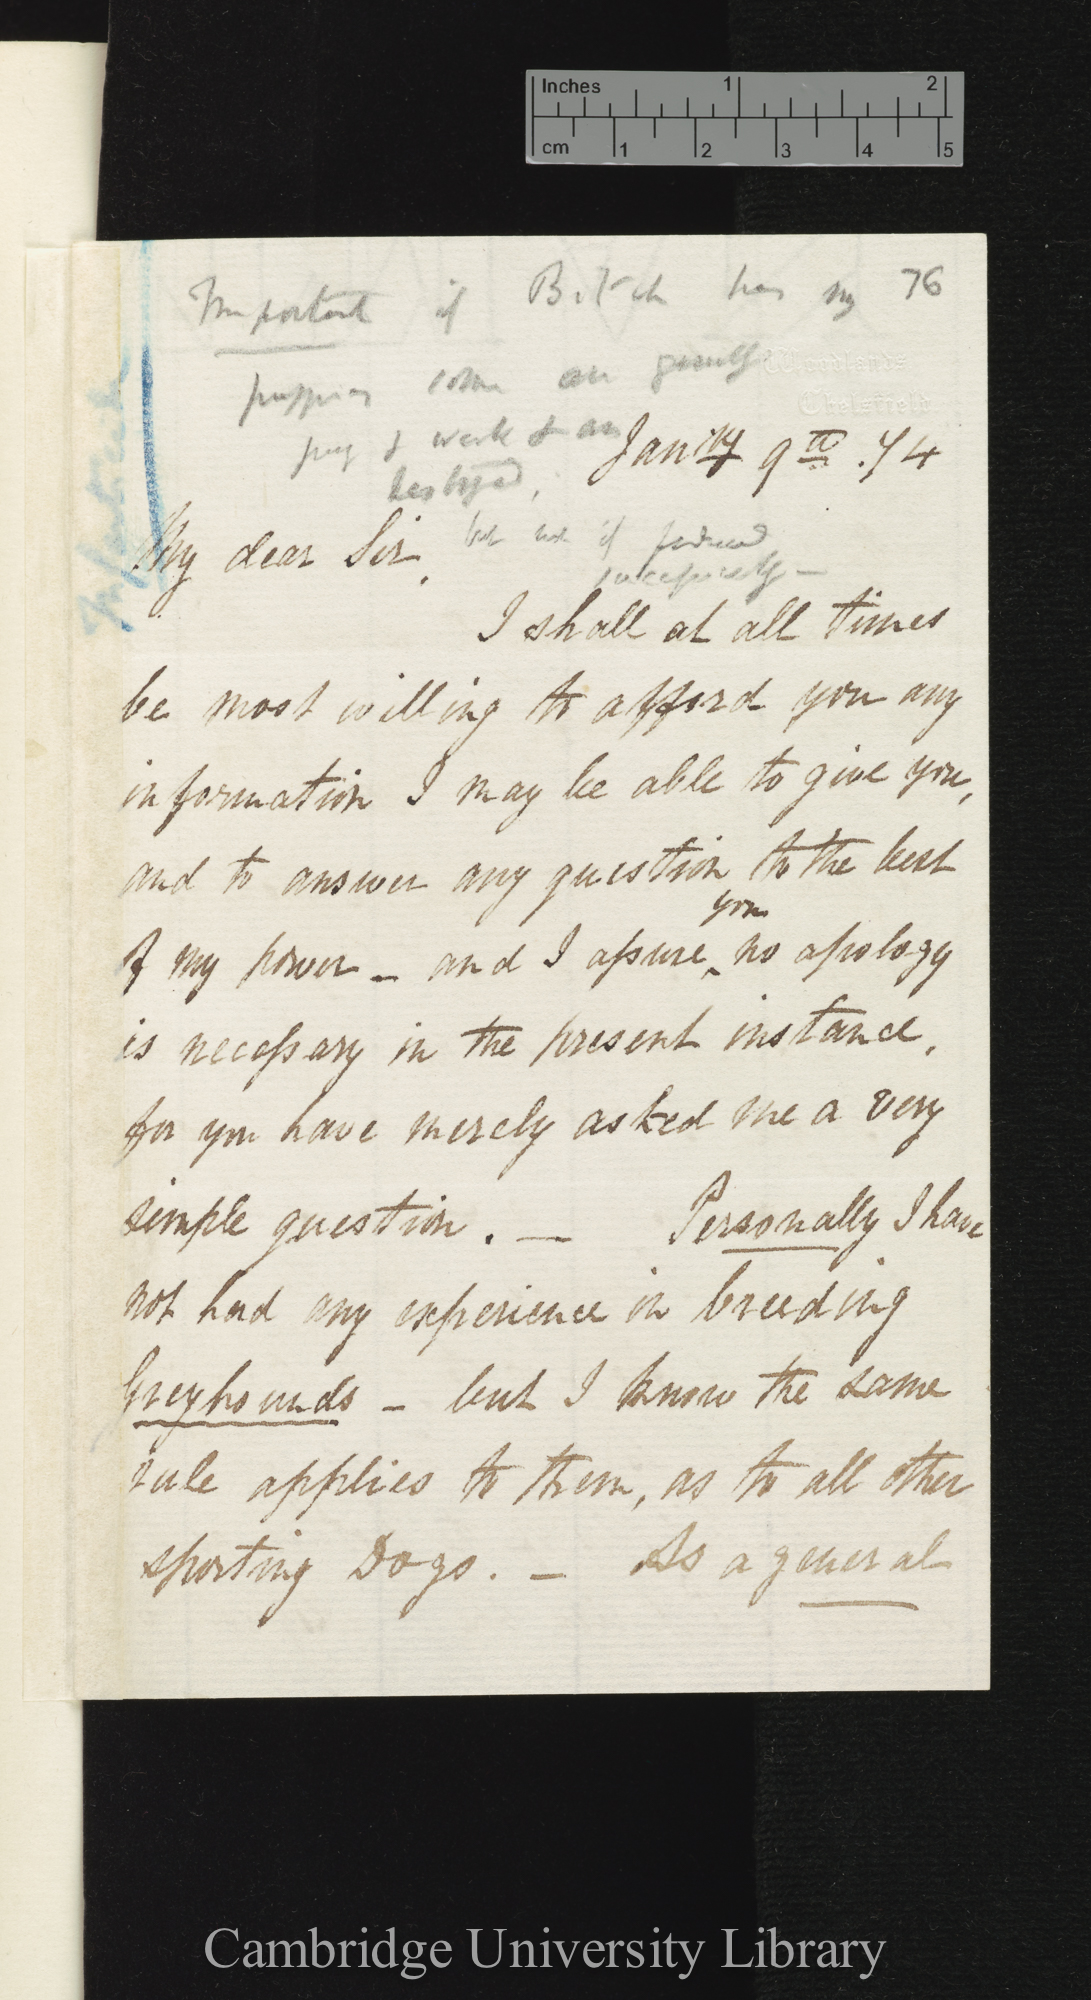 Inches 1 2
cm 1 2 3 4 5
Important if Bitch has my 76
puppies some are generally
Woodlands
Chelsfield
puny & weak & are
destroyed,
Jany 9th . 74
My dear Sir,
but not if
Infanticide
I shall at all times
be most willing to afford you any
information I may be able to give you,
and to answer any question to the best
of my power – and I assure you no apology
is necessary in the present instance,
for you have merely asked me a very
simple question. — Personally I have
not had any experience in breeding
Greyhounds – but I know the same
rule applies to them, as to all other
sporting Dogs. – As a general
Cambridge University Library